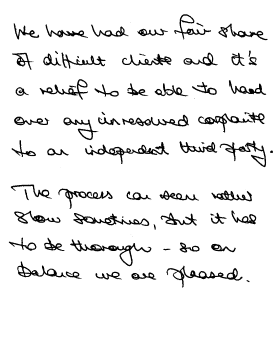 We have had our fair share
of difficult clients and it's
a relief to be able to hand
over any unresolved complaints
to an independent third party.
The process can seem rather
slow sometimes, but it has
to be thorough - so on
balance we are pleased.